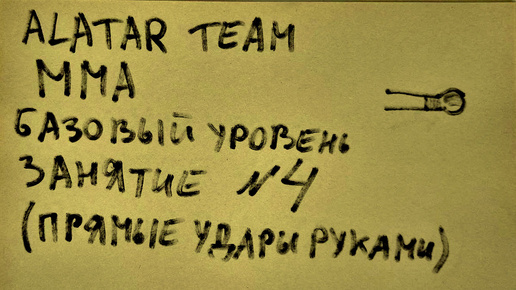 ALATAR TEAM
MMA
БАЗОВЫЙ УРОВЕНЬ
ЗАНЯТИЕ №4
(ПРЯМЫЕ УДАРЫ РУКАМИ)